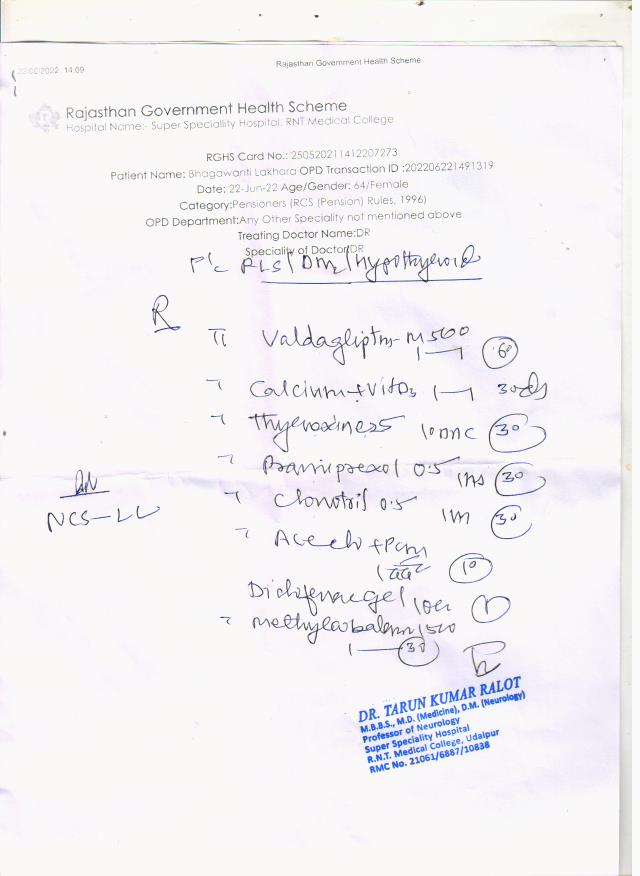 22/06/2022, 14:09
Rajasthan Government Health Scheme
Rajasthan Government Health Scheme
Hospital Name:- Super Speciallity Hospital, RNT Medical College
RGHS Card No.: 250520211412207273
Patient Name: Bhagawanti Lakhara OPD Transaction ID :202206221491319
Date: 22-Jun-22 Age/Gender: 64/Female
Category:Pensioners (RCS (Pension) Rules, 1996)
OPD Department:Any Other Speciality not mentioned above
Treating Doctor Name:DR
Speciality of Doctor:DR
RLS / DM2 / Hypothyroid
R
Valdagliptin-M 500
1—1 60
Calcium + Vit D3 1—1 30
Thyroxine 25 30
Pramiprexol 0.5 1HS 30
Clonotril 0.5 30
NCS-LL
Aceclo + Pcm
10
Diclofenac gel
Methylcobalamin 1500
1— 30
DR. TARUN KUMAR RALOT
M.B.B.S., M.D. (Medicine), D.M. (Neurology)
Professor of Neurology
Super Speciality Hospital
R.N.T. Medical College, Udaipur
RMC No. 21061/6887/10838